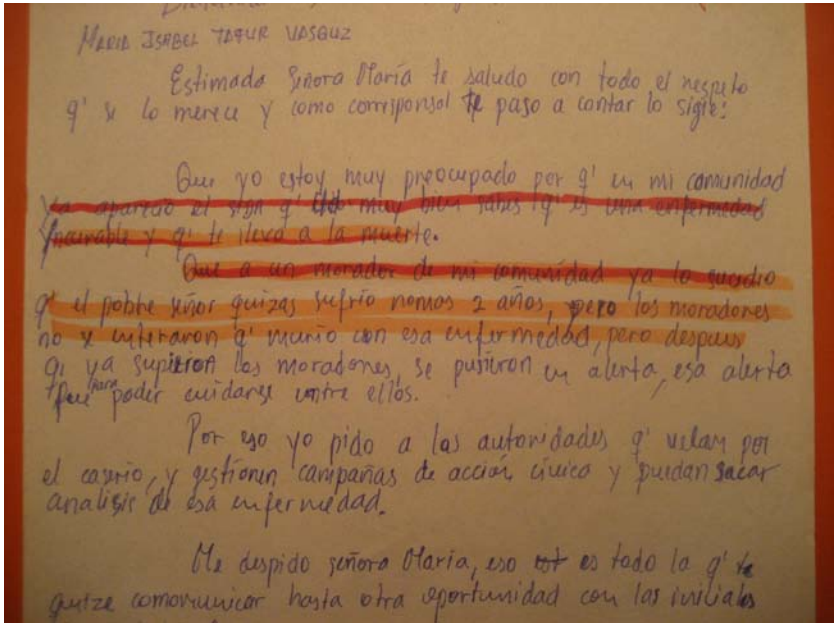 MARIA ISABEL TAFUR VASQUZ
Estimada Señora María te saludo con todo el respeto
q' se lo merece y como corresponsal te paso a contar lo sigte:
Que yo estoy muy preocupado por q' en mi comunidad
ya aparecio el sida q' muy bien sabes q' es una enfermedad
yncurable y q' te lleva a la muerte.
Que a un morador de mi comunidad ya lo sucedio
q' el pobre señor quizas sufrio nomas 2 años, pero los moradores
no se enteraron q' murio con esa enfermedad, pero despues
q' ya supieron los moradores, se pusieron en alerta, esa alerta
fue para poder cuidarse entre ellos.
Por eso yo pido a las autoridades q' velam por
el caserio, y gestionen campañas de acción civica y puedan sacar
analisis de esa enfermedad.
Me despido señora María, eso es todo la q' te
quize comonunicar hasta otra oportunidad con las iniciales